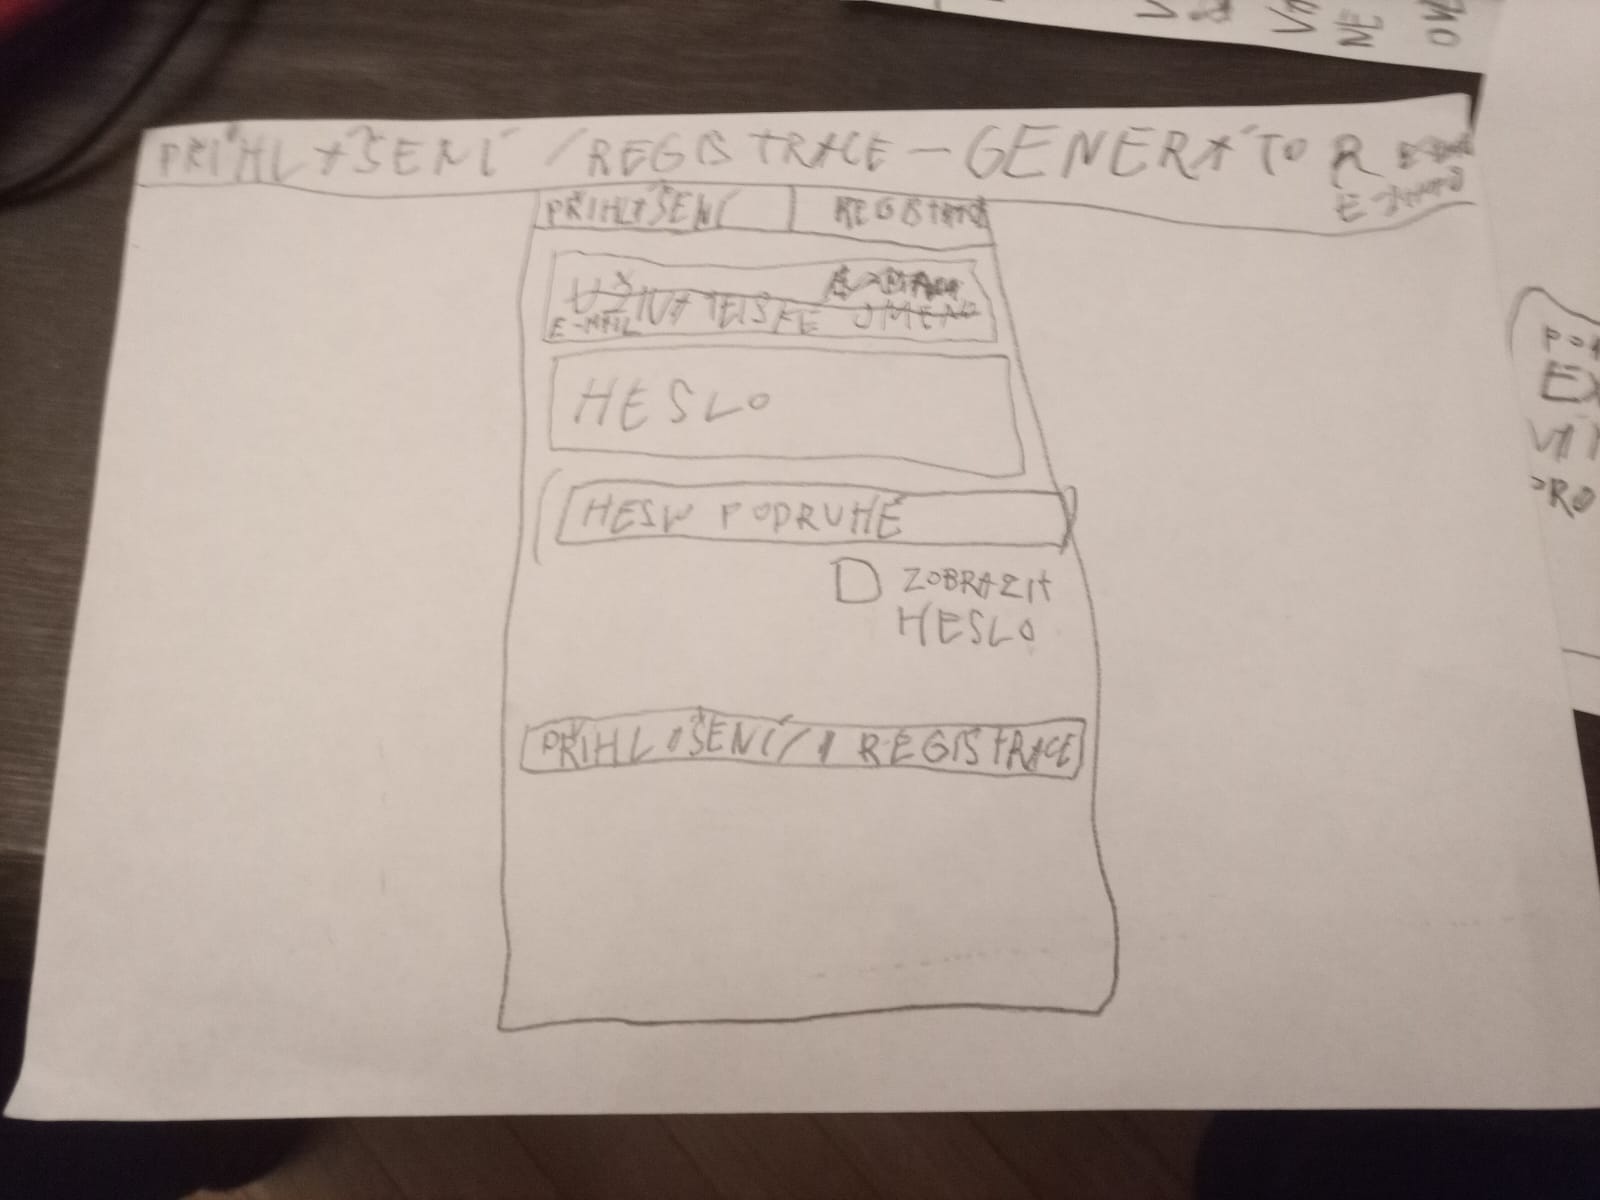 PŘIHLÁŠENÍ / REGISTRACE - GENERÁTOR
PŘIHLÁŠENÍ REGISTRACE
UŽIVATELSKÉ JMÉNO
E-MAIL
HESLO
HESLO PODRUHÉ
ZOBRAZIT
HESLO
PŘIHLÁŠENÍ / REGISTRACE
NE